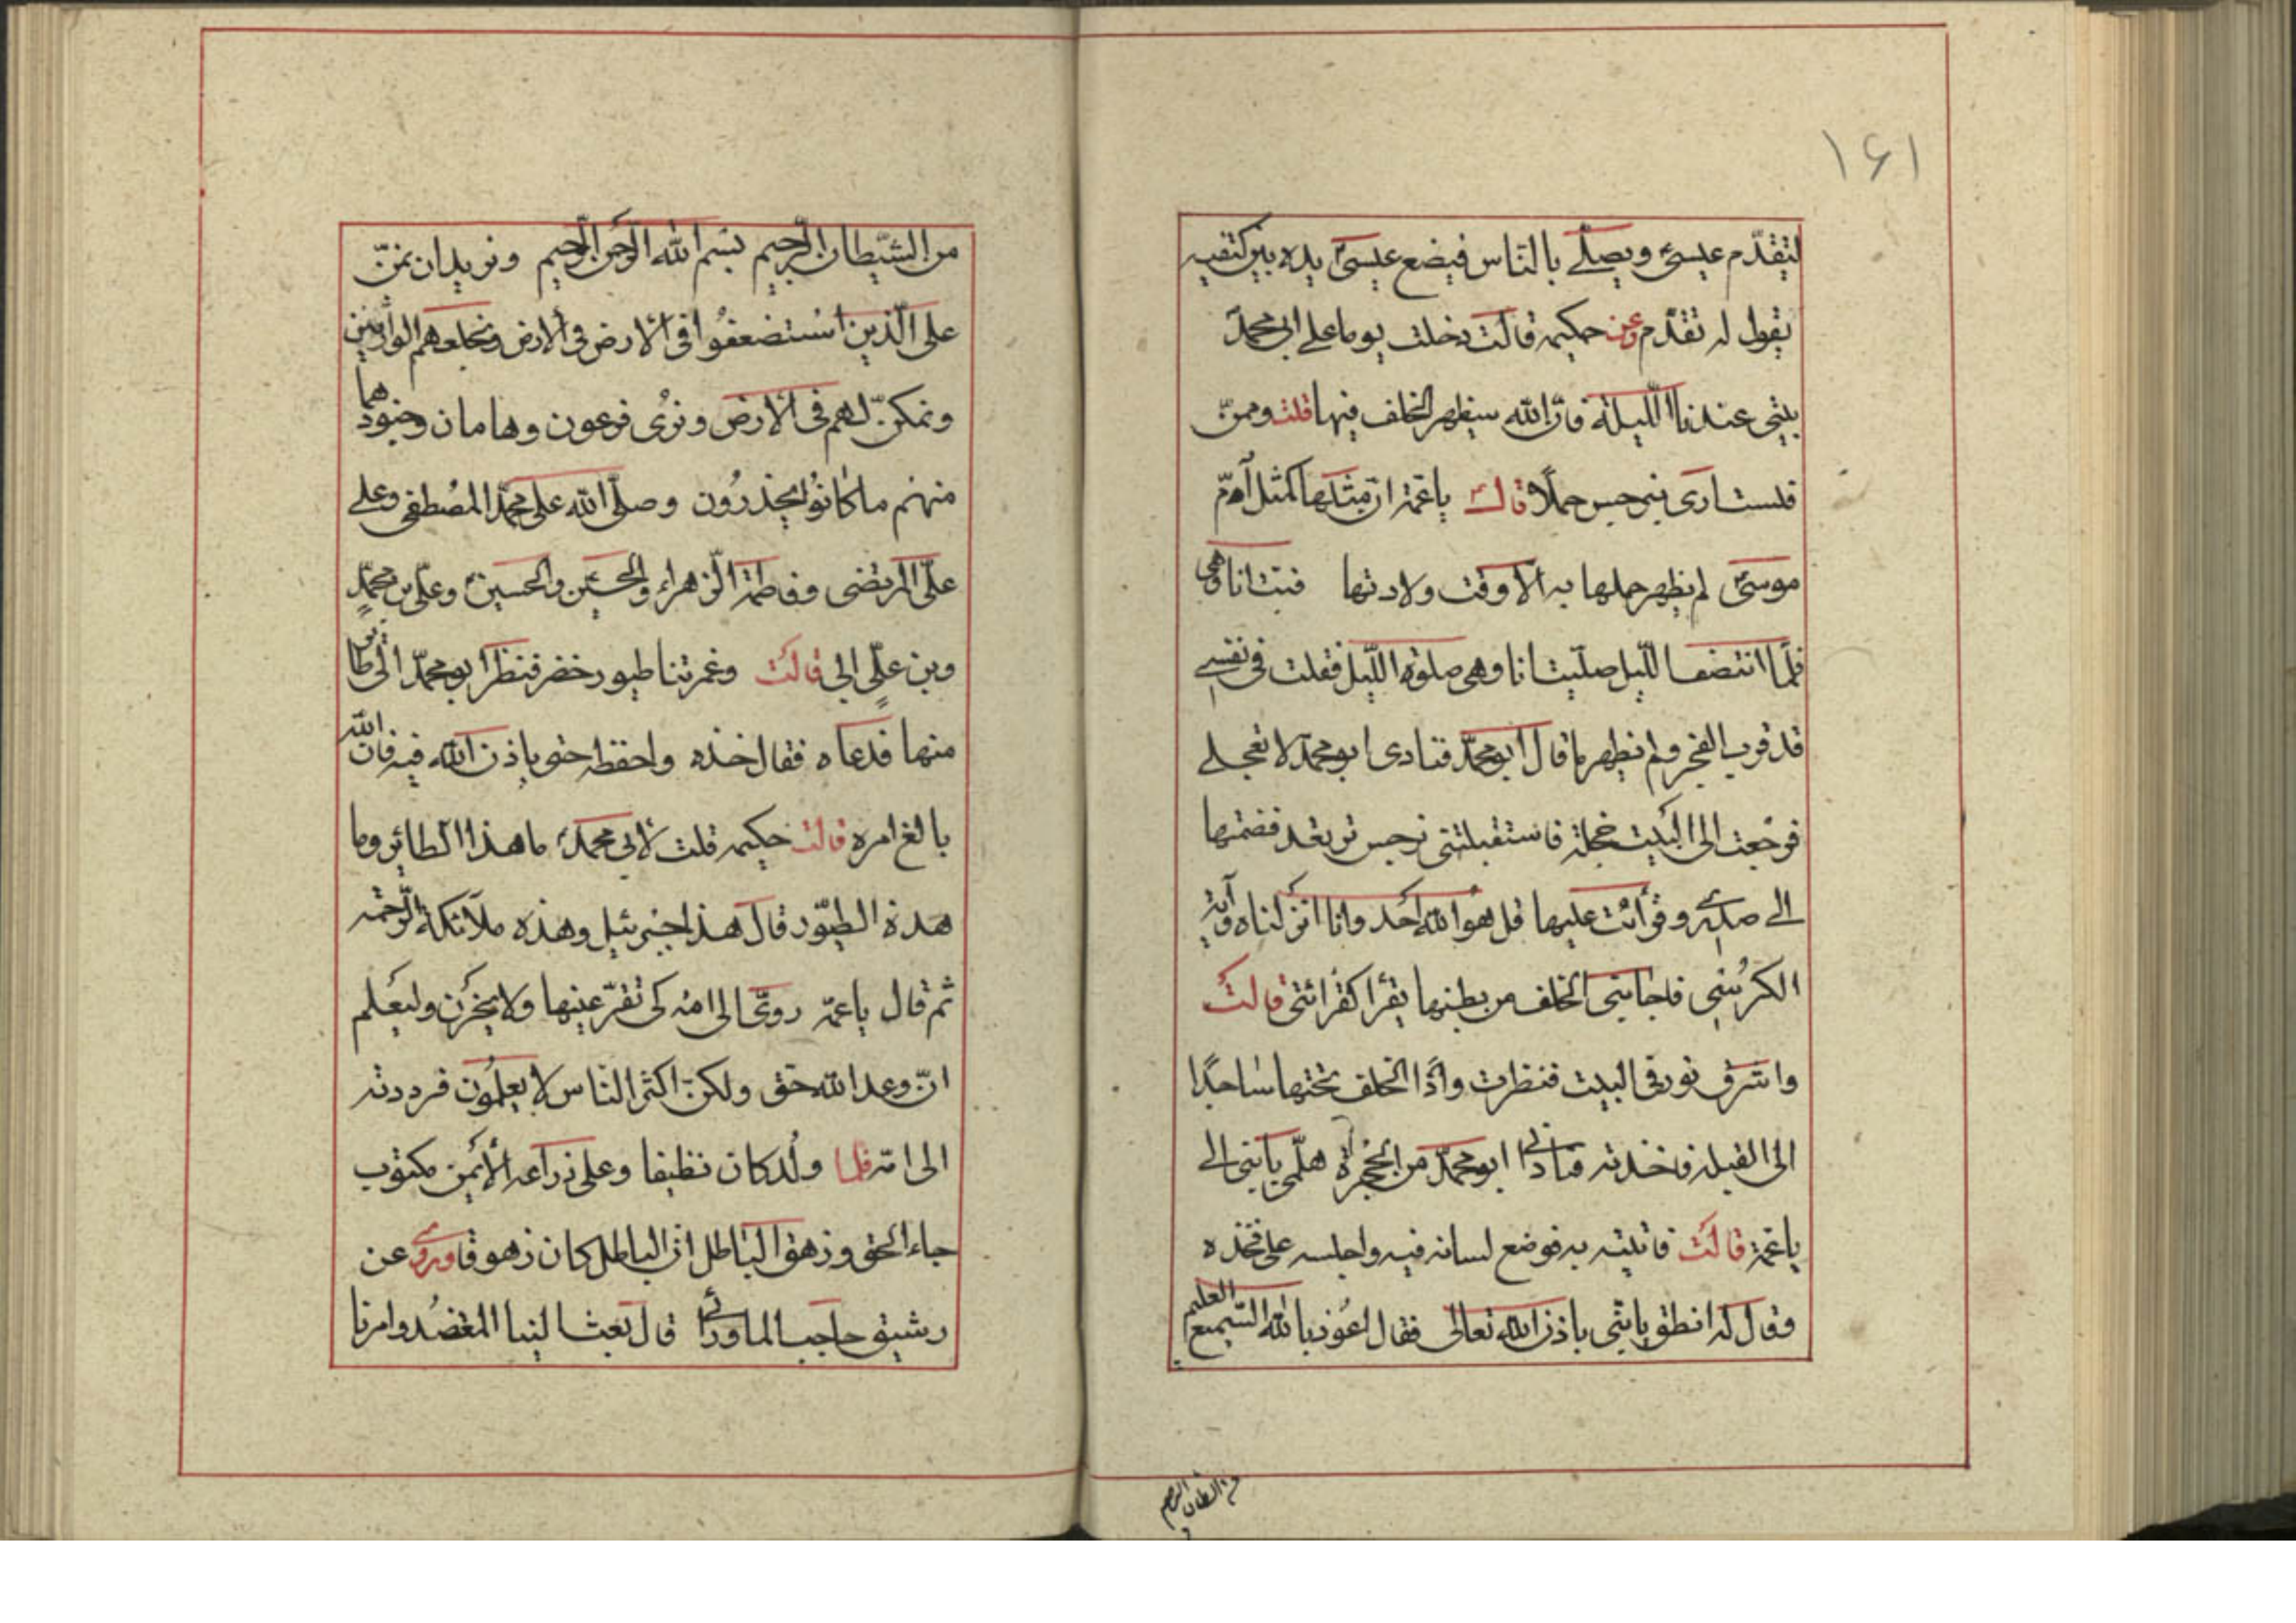 ۱۶۱
لتقدّم عيسىٰ ويصلّے بالنّاس فيضع عيسىٰ يده بين كتفيه
يقول له تقدّم وعن حكيمه قالت دخلت يوما على ابى محمّد
بيتى عندنا اللّيلة فانّ الله سيظهر الخلف فيها قلت وممنّ
فلست ارى بنرجس حملًا قال ياعمّة انّ مثلها كمثل امّ
موسىٰ لم يظهر حملها به الّا وقت ولادتها فبتّ انا وهى
فلمّا انتصف اللّيل صلّيت انا وهى صلوة اللّيل فقلت فى نفسے
قد قرب الفجر ولم يظهر ما قال ابو محمّد فنادى ابو محمّد لا تعجلے
فرجعت الى البيت خجلة فاستقبلتنى نرجس ترتعد فضمتها
الے صدرے وقرأت عليها قل هو الله احد وانا انزلناه وآية
الكرسى فاجابنى الخلف من بطنها يقرأ كقرائتى قالت
واشرق نور فى البيت فنظرت واذا الخلف تحتها ساجدًا
الى القبلة فاخذته فنادانى ابو محمّد من الحجرة هلمّى يابنى الے
ياعمّة قالت فاتيته به فوضع لسانه فيه واجلسه على فخذه
وقال له انطق يابنى باذن الله تعالى فقال اعوذ بالله السّميع العليم
من الشيطان الرجيم
من الشّيطان الرّجيم بسم الله الرّحمن الرّحيم ونريد ان نمنّ
على الّذين استضعفوا فى الارض فى الارض ونجلعهم الوارثين
ونمكنّ لهم فى الارض ونرى فرعون وهامان وجنودهما
منهم ما كانوا يحذرون وصلّى الله على محمّد المصطفى وعلے
علىّ المرتضى وفاطمة الزّهراء والحسن والحسين وعلى بن محمّد
وبن علّى الى قالت وغمرتنا طيور خضر فنظر ابو محمّد الى طائر
منها فدعاه فقال خذه واحفظه حتى ياذن الله فيه فانّ الله
بالغ امره قالت حكيمه قلت لابى محمّد ما هذا الطائر وما
هذة الطيّور قال هذا جبرئيل وهذه ملآئكة الرّحمة
ثم قال ياعمّة ردّى الى امّه كى تقرّ عينها ولا يحزن وليعلم
انّ وعد الله حق ولكنّ اكثر النّاس لا يعلمون فرددته
الى امّه فلما ولد كان نظيفا وعلى ذراعه الأيمن مكتوب
جاء الحق وزهق الباطل انّ الباطل كان زهوقا وروى عن
رشيق حاجب الماورائى قال بعث الينا المعتضد وامرنا